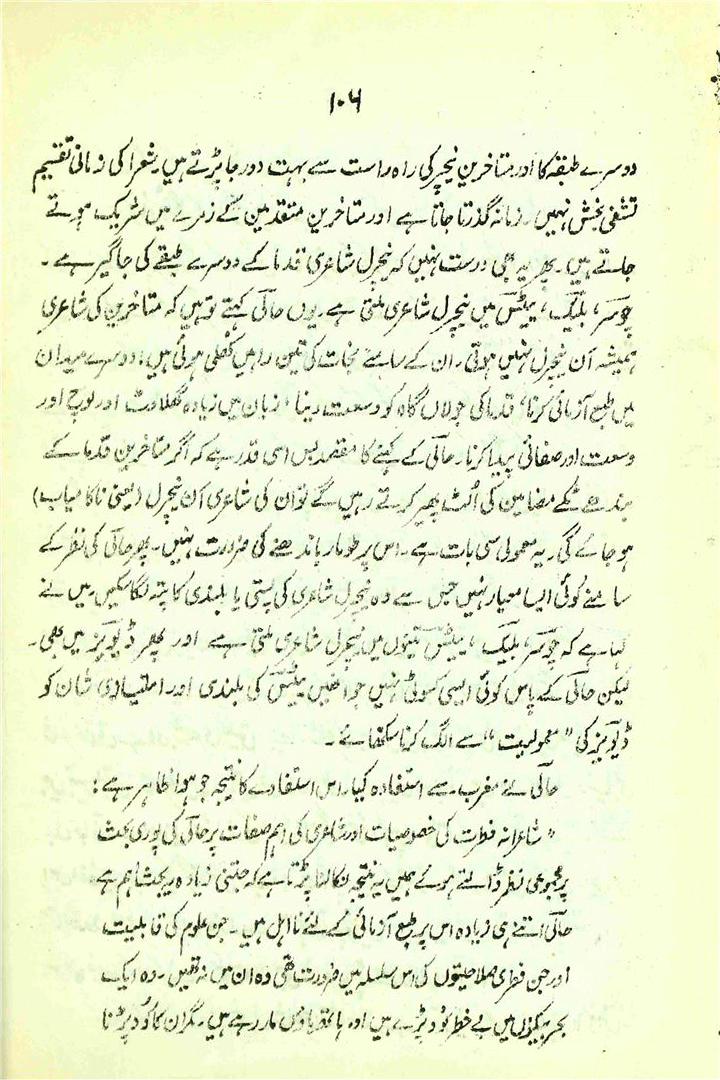 ۱۰۶
دوسرے طبقہ کا اور متاخرین نیچر کی راہ راست سے بہت دور جا پڑتے ہیں۔ شعرا کی زمانی تقسیم
تشفی بخش نہیں۔ زمانہ گذرتا جاتا ہے اور متاخرین متقدمین کے زمرے میں شریک ہوتے
جاتے ہیں۔ پھر یہ بھی درست نہیں کہ نیچرل شاعری قدما کے دوسرے طبقے کی جاگیر ہے۔
چوسر، بلیک، ییٹس میں نیچرل شاعری ملتی ہے۔ یوں حالی کہتے تو ہیں کہ متاخرین کی شاعری
ہمیشہ اَن نیچرل نہیں ہوتی۔ ان کے سامنے نجات کی تین راہیں کھلی ہوئی ہیں: دوسرے میدان
میں طبع آزمائی کرنا، قدما کی جولاں گاہ کو وسعت دینا، زبان میں زیادہ گھلاوٹ اور لوچ اور
وسعت اور صفائی پیدا کرنا۔ حالی کے کہنے کا مقصد بس اسی قدر ہے کہ اگر متاخرین قدما کے
بندھے ٹکے مضامین کی الٹ پھیر کرتے رہیں گے تو ان کی شاعری اَن نیچرل (یعنی ناکامیاب)
ہو جائے گی۔ یہ معمولی سی بات ہے۔ اس پر طومار باندھنے کی ضرورت نہیں۔ پھر حالی کی نظر کے
سامنے کوئی ایسا معیار نہیں جس سے وہ نیچرل شاعری کی پستی یا بلندی کا پتہ لگا سکیں۔ میں نے
کہا ہے کہ چوسر، بلیک، ییٹس تینوں میں نیچرل شاعری ملتی ہے اور پھر ڈیویز میں بھی۔
لیکن حالی کے پاس کوئی ایسی کسوٹی نہیں جو انھیں ییٹس کی بلندی اور امتیازی شان کو
ڈیویز کی "معمولیت" سے الگ کرنا سکھائے۔
حالی نے مغرب سے استفادہ کیا۔ اس استفادے کا نتیجہ جو ہوا ظاہر ہے:
"شاعرانہ فطرت کی خصوصیات اور شاعری کی اہم صفات پر حالی کی پوری بحث
پر مجموعی نظر ڈالتے ہوئے ہمیں یہ نتیجہ نکالنا پڑتا ہے کہ جتنی زیادہ یہ بحث اہم ہے
حالی اتنے ہی زیادہ اس پر طبع آزمائی کے لئے نا اہل ہیں۔ جن علوم کی قابلیت
اور جن فطری صلاحیتوں کی اس سلسلہ میں ضرورت تھی وہ ان میں نہ تھیں۔ وہ ایک
بحر بیکراں میں بے خطر کود پڑے ہیں اور ہاتھ پاؤں مار رہے ہیں۔ مگر ان کا کود پڑنا